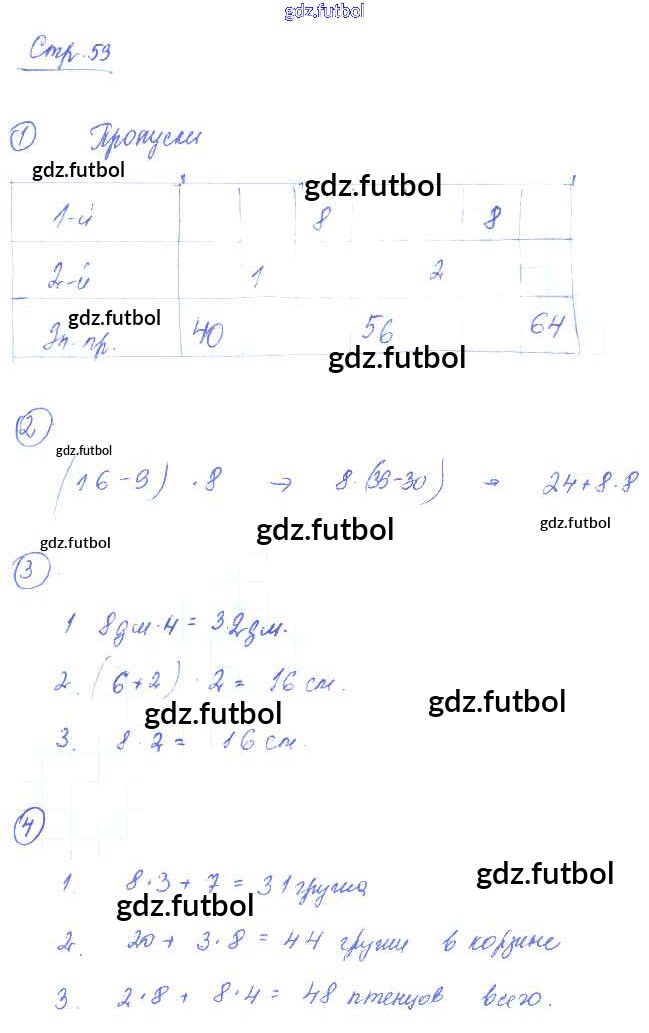 gdz.futbol
Стр. 59
1 Пропуски
gdz.futbol
gdz.futbol
1-й 8 8
2-й 1 2
gdz.futbol
Зн. пр. 40 56 64
gdz.futbol
2
gdz.futbol
(16-9) · 8 → 8·(36-30) → 24+8·8
gdz.futbol
gdz.futbol
gdz.futbol
3
1 8дм·4 = 32дм.
2. (6+2) · 2 = 16 см.
gdz.futbol
gdz.futbol
3. 8·2 = 16 см.
4
gdz.futbol
1. 8·3 + 7 = 31 груша
gdz.futbol
2. 20 + 3·8 = 44 груши в корзине
3. 2·8 + 8·4 = 48 птенцов всего.
gdz.futbol